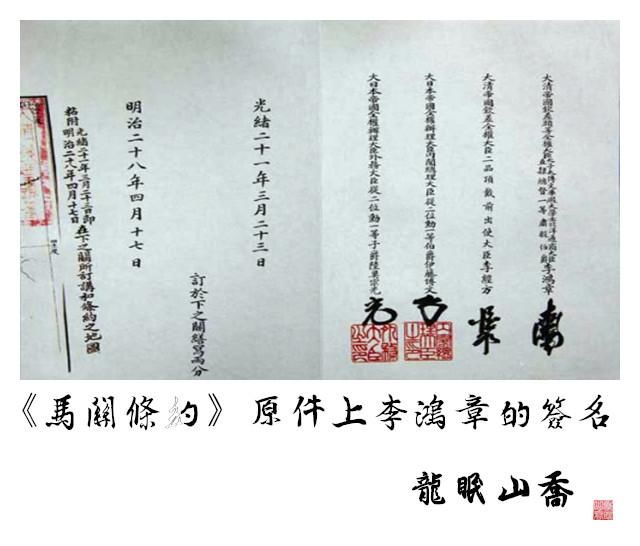 大清帝國欽差頭等全權大臣太子太傅文華殿大學士北洋通商大臣直隸總督一等肅毅伯爵李鴻章
大清帝國欽差全權大臣二品頂戴前出使大臣李經方
大日本帝國全權辦理大臣內閣總理大臣從二位勳一等伯爵伊藤博文
大日本帝國全權辦理大臣外務大臣從二位勳一等子爵陸奧宗光
光緒二十一年三月二十三日
訂於下之關繕寫兩分
明治二十八年四月十七日
粘附光緒二十一年三月二十三日即
明治二十八年四月十七日
在下之關所訂講和條約之地圖
《馬關條約》原件上李鴻章的簽名
龍眠山喬